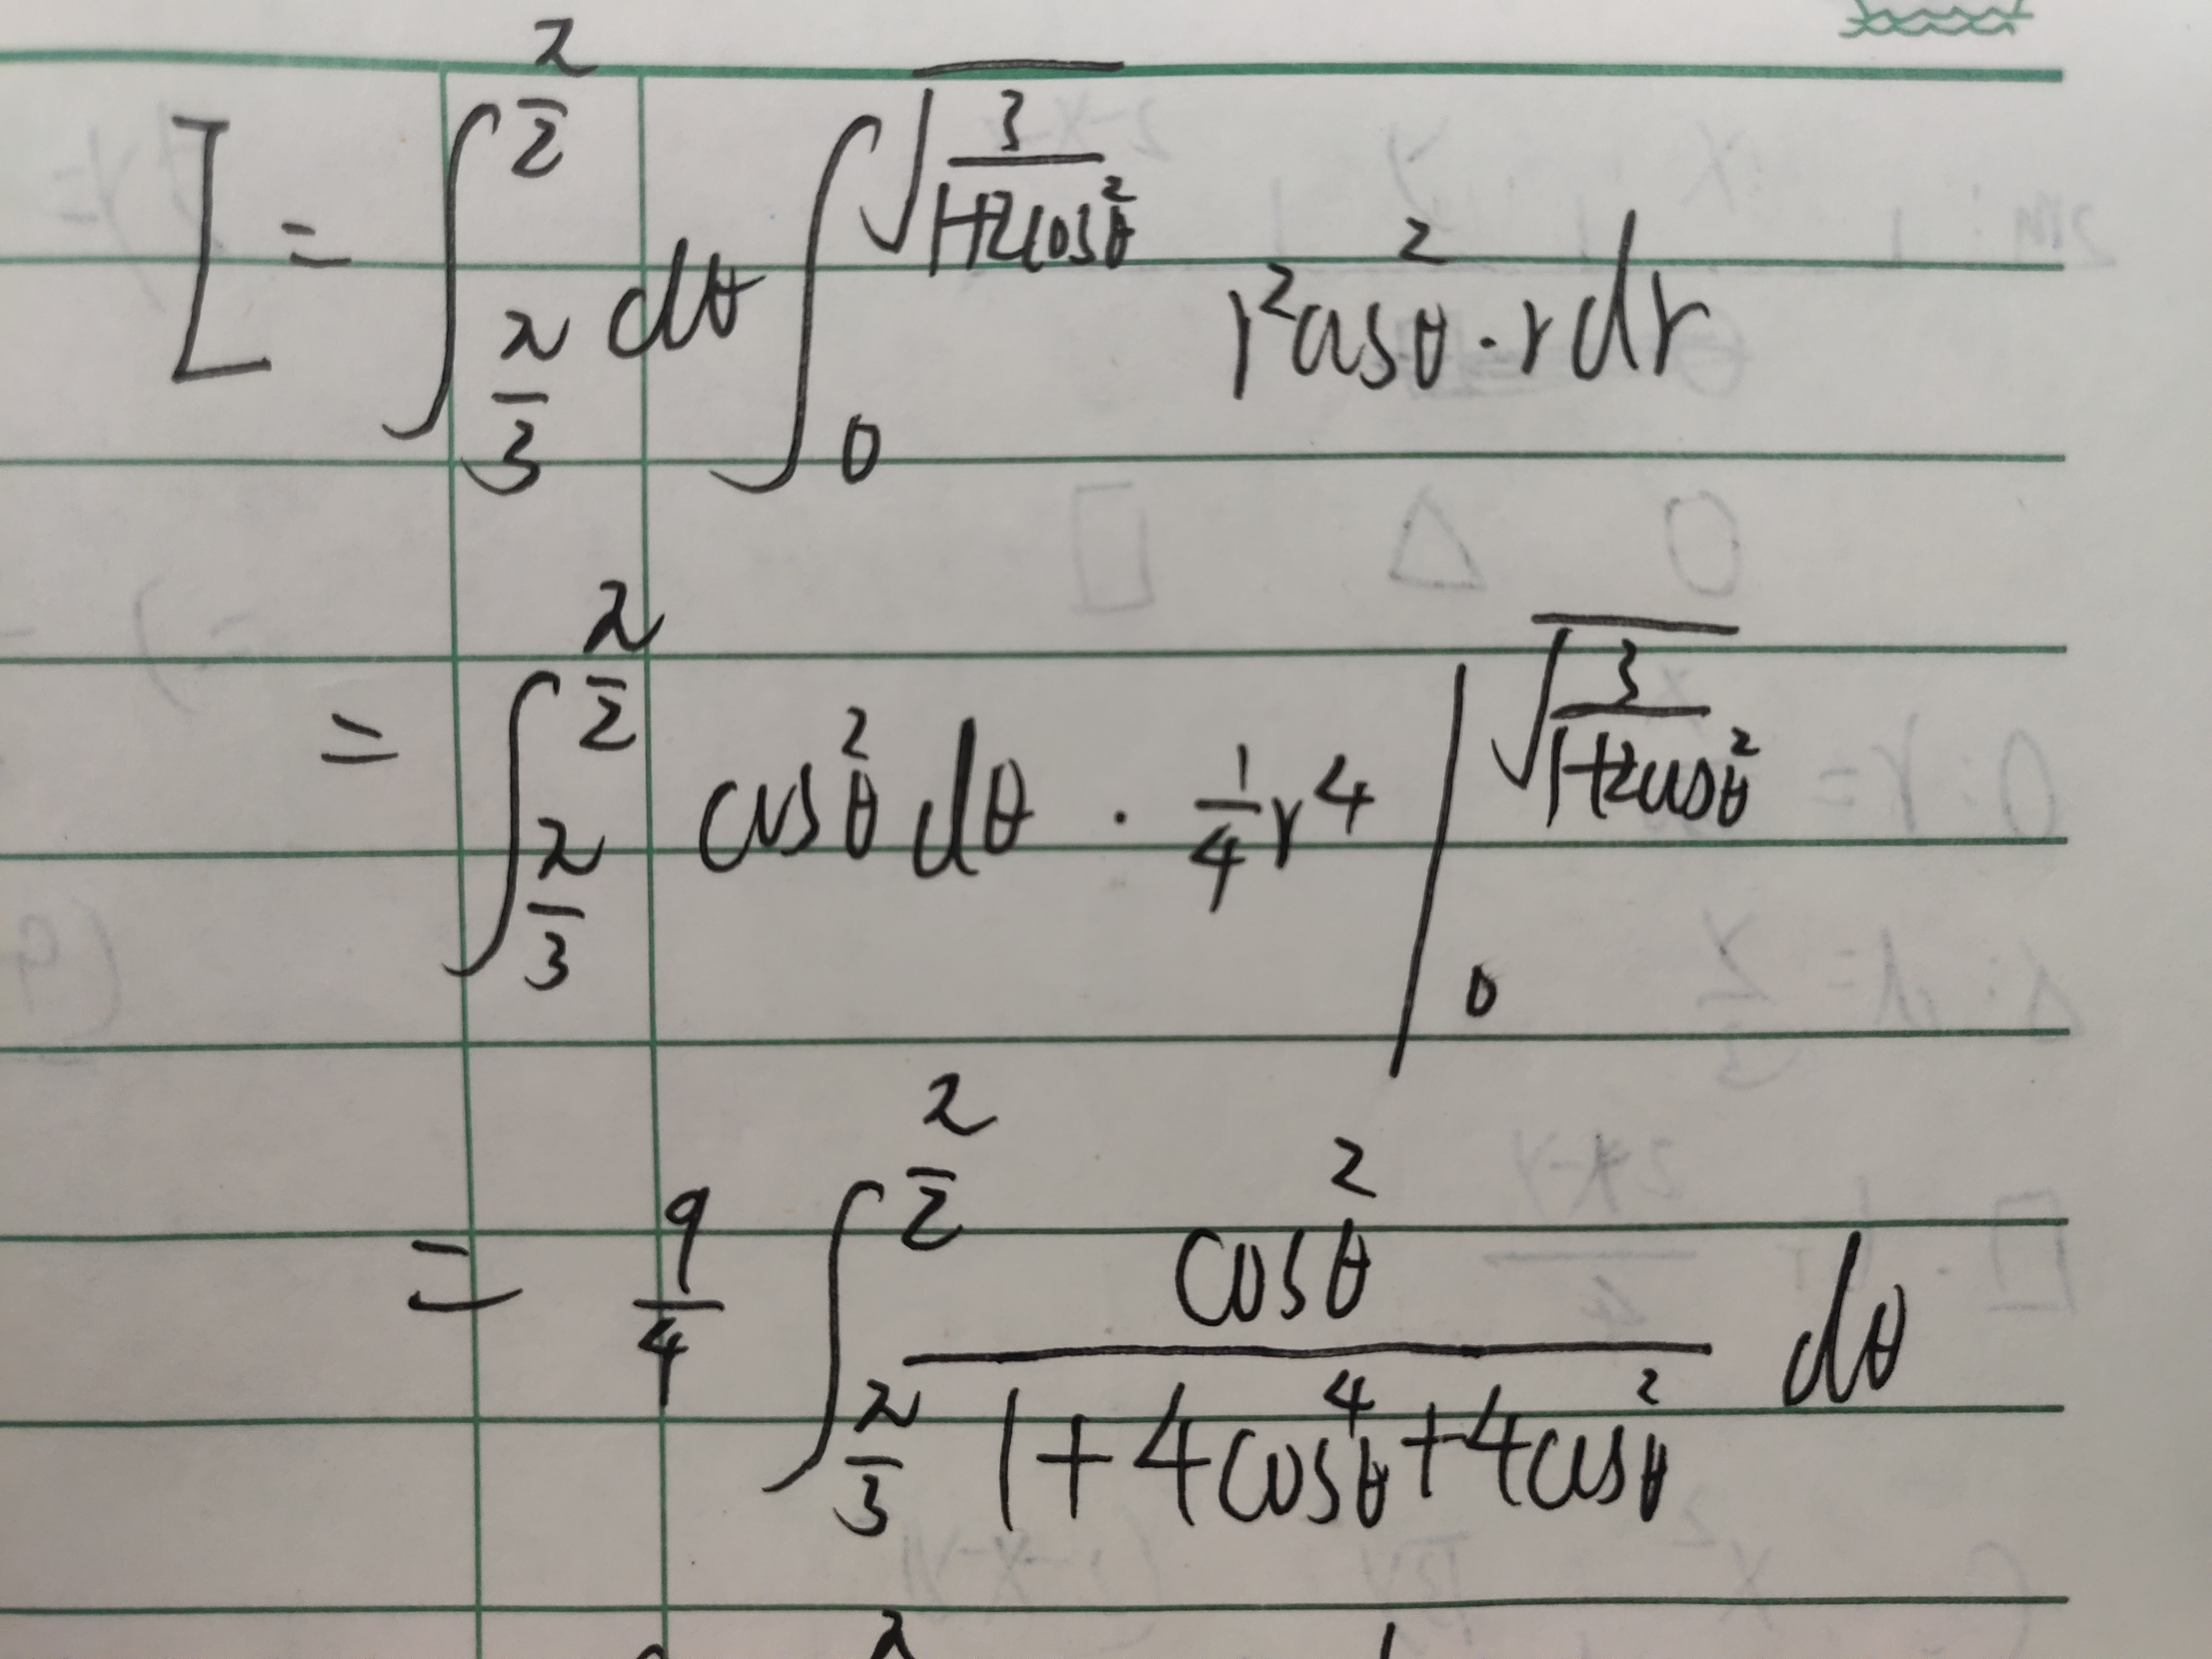 I = ∫_{π/3}^{π/2} dθ ∫_0^{√(3/(1+2cos²θ))} r²cos²θ · r dr
= ∫_{π/3}^{π/2} cos²θ dθ · 1/4 r⁴ |_0^{√(3/(1+2cos²θ))}
= 9/4 ∫_{π/3}^{π/2} cos²θ/(1+4cos⁴θ+4cos²θ) dθ